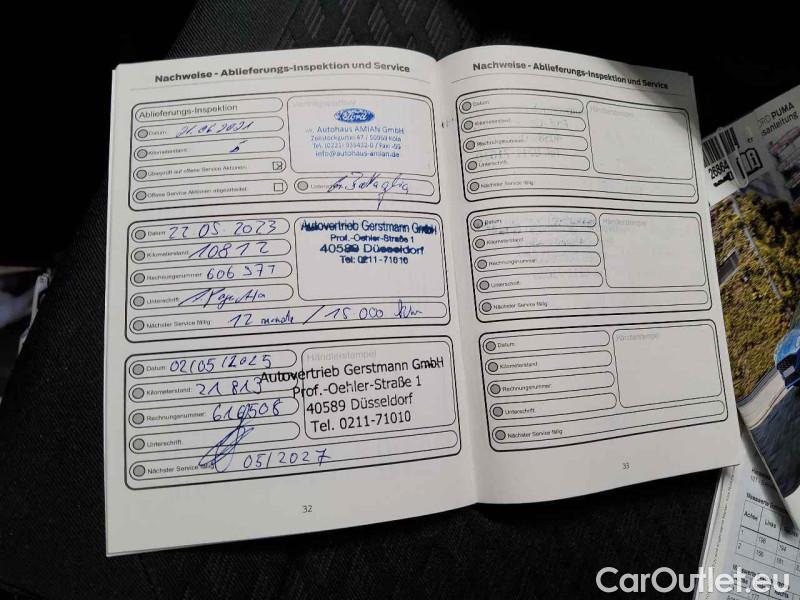 Nachweise - Ablieferungs-Inspektion und Service
Ablieferungs-Inspektion
Datum: 21.06.2021
Kilometerstand: 5
Überprüft auf offene Service Aktionen:
Offene Service Aktionen abgearbeitet:
Ford
Autohaus AMIAN GmbH
info@autohaus-amian.de
Datum: 22.05.2023
Kilometerstand: 10812
Rechnungsnummer: 606977
Unterschrift:
Nächster Service fällig: 12 monate / 15 000 km
Autovertrieb Gerstmann GmbH
Prof.-Oehler-Straße 1
40589 Düsseldorf
Tel: 0211-71010
Datum: 02/05/2025
Kilometerstand: 21 813
Rechnungsnummer: 610508
Unterschrift:
Nächster Service fällig: 05/2027
Händlerstempel
Autovertrieb Gerstmann GmbH
Prof.-Oehler-Straße 1
40589 Düsseldorf
Tel. 0211-71010
32
Nachweise - Ablieferungs-Inspektion und Service
Datum:
Kilometerstand:
Rechnungsnummer:
Unterschrift:
Nächster Service fällig:
Händlerstempel
Datum:
Kilometerstand:
Rechnungsnummer:
Unterschrift:
Nächster Service fällig:
Händlerstempel
Datum:
Kilometerstand:
Rechnungsnummer:
Unterschrift:
Nächster Service fällig:
Händlerstempel
33
PUMA
CarOutlet.eu